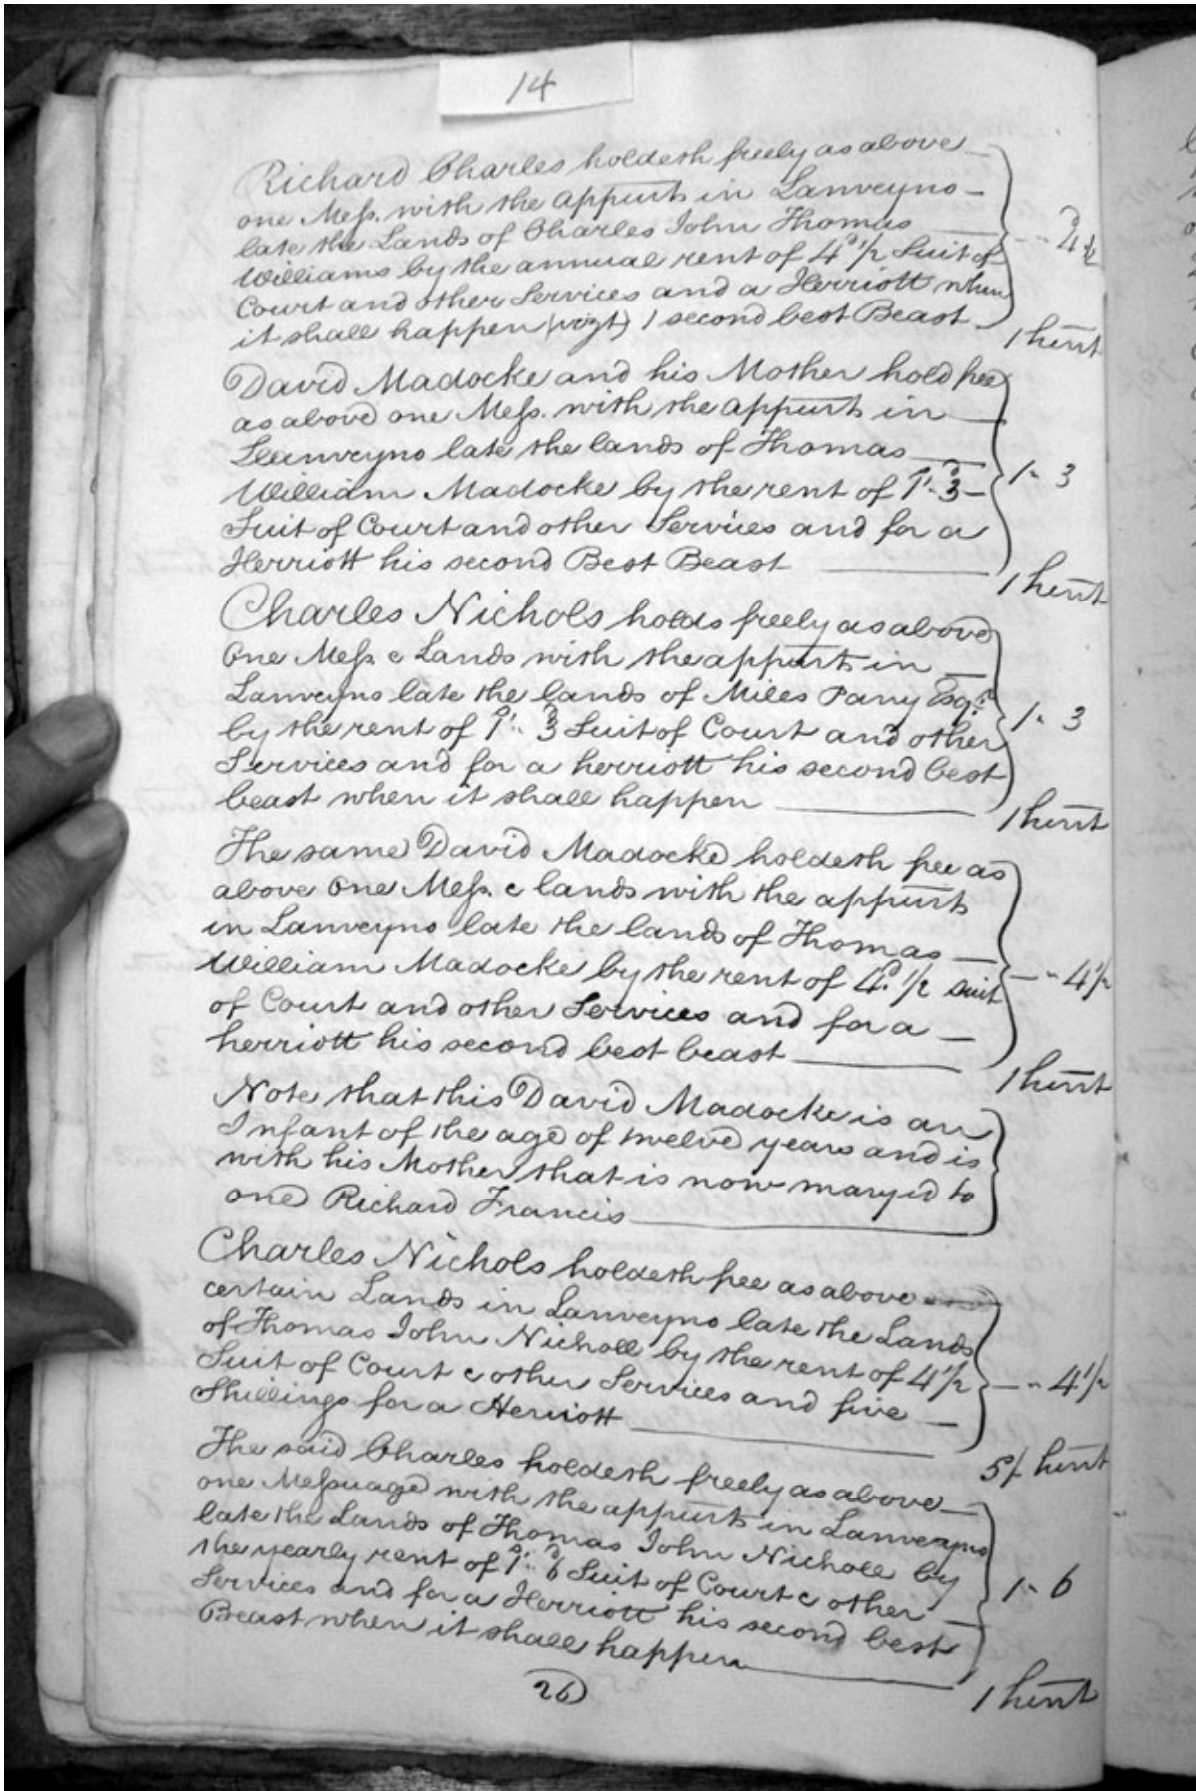 14
Richard Charles holdeth freely as above
one Mess. with the appurts in Lanveyno
late the Lands of Charles John Thomas
Williams by the annual rent of 4d 1/2 Suit of
Court and other Services and a Herriott when
it shall happen (vizt) 1 second best Beast
-- 4d 1/2
1 herrt
David Madocke and his Mother hold free
as above one Mess. with the appurts in
Llanveyno late the lands of Thomas
William Madocke by the rent of 1s. 3d
Suit of Court and other Services and for a
Herriott his second Best Beast
1 - 3
1 herrt
Charles Nichols holds freely as above
One Mess. & Lands with the appurts in
Lanveyno late the lands of Miles Parry Esqr.
by the rent of 1s. 3d Suit of Court and other
Services and for a herriott his second best
beast when it shall happen
1 - 3
1 herrt
The same David Madocke holdeth free as
above One Mess. & lands with the appurts
in Lanveyno late the lands of Thomas
William Madocke by the rent of 4d. 1/2 suit
of Court and other Services and for a
herriott his second best beast
-- 4 1/2
1 herrt
Note that this David Madocke is an
Infant of the age of twelve years and is
with his Mother that is now maryed to
one Richard Francis
Charles Nichols holdeth free as above
certain Lands in Lanveyno late the Lands
of Thomas John Nicholl by the rent of 4 1/2
Suit of Court & other Services and five
Shillings for a Herriott
-- 4 1/2
5/- herrt
The said Charles holdeth freely as above
one Messuage with the appurts in Lanveyno
late the Lands of Thomas John Nicholl by
the yearly rent of 1s. 6d Suit of Court & other
Services and for a Herriott his second best
Beast when it shall happen
1 - 6
1 herrt
26